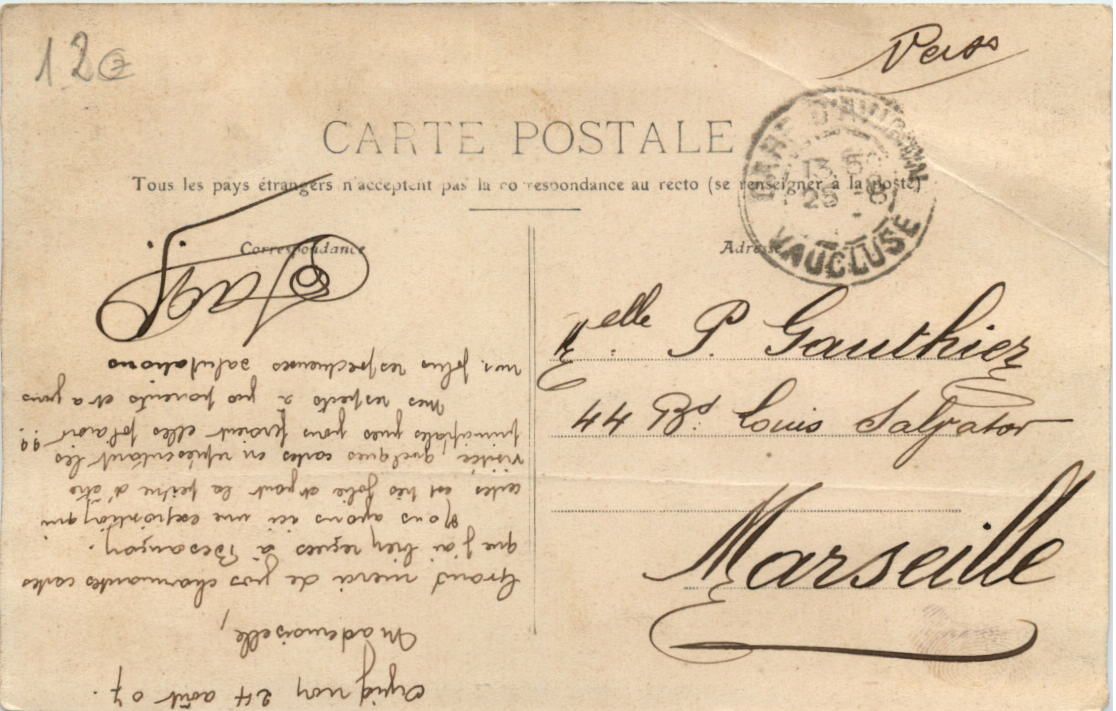 12€
Pers
CARTE POSTALE
Tous les pays étrangers n'acceptent pas la correspondance au recto (se renseigner à la poste)
Correspondance
Adresse
GARE D'AVIGNON
13
25 -8
VAUCLUSE
Melle P. Gauthier
44 Bd. Louis Salvator
Marseille
Avignon 24 août 07.
Mademoiselle,
Grand merci de vos charmantes cartes
que j'ai bien reçues à Besançon.
Nous avons ici une exposition qui
certes est très jolie et vaut la peine d'être
visitée, quelques cartes en représentant les
principales vues vous feraient elles plaisir ??
Mes respects à vos parents et à vous
mes plus respectueuses salutations